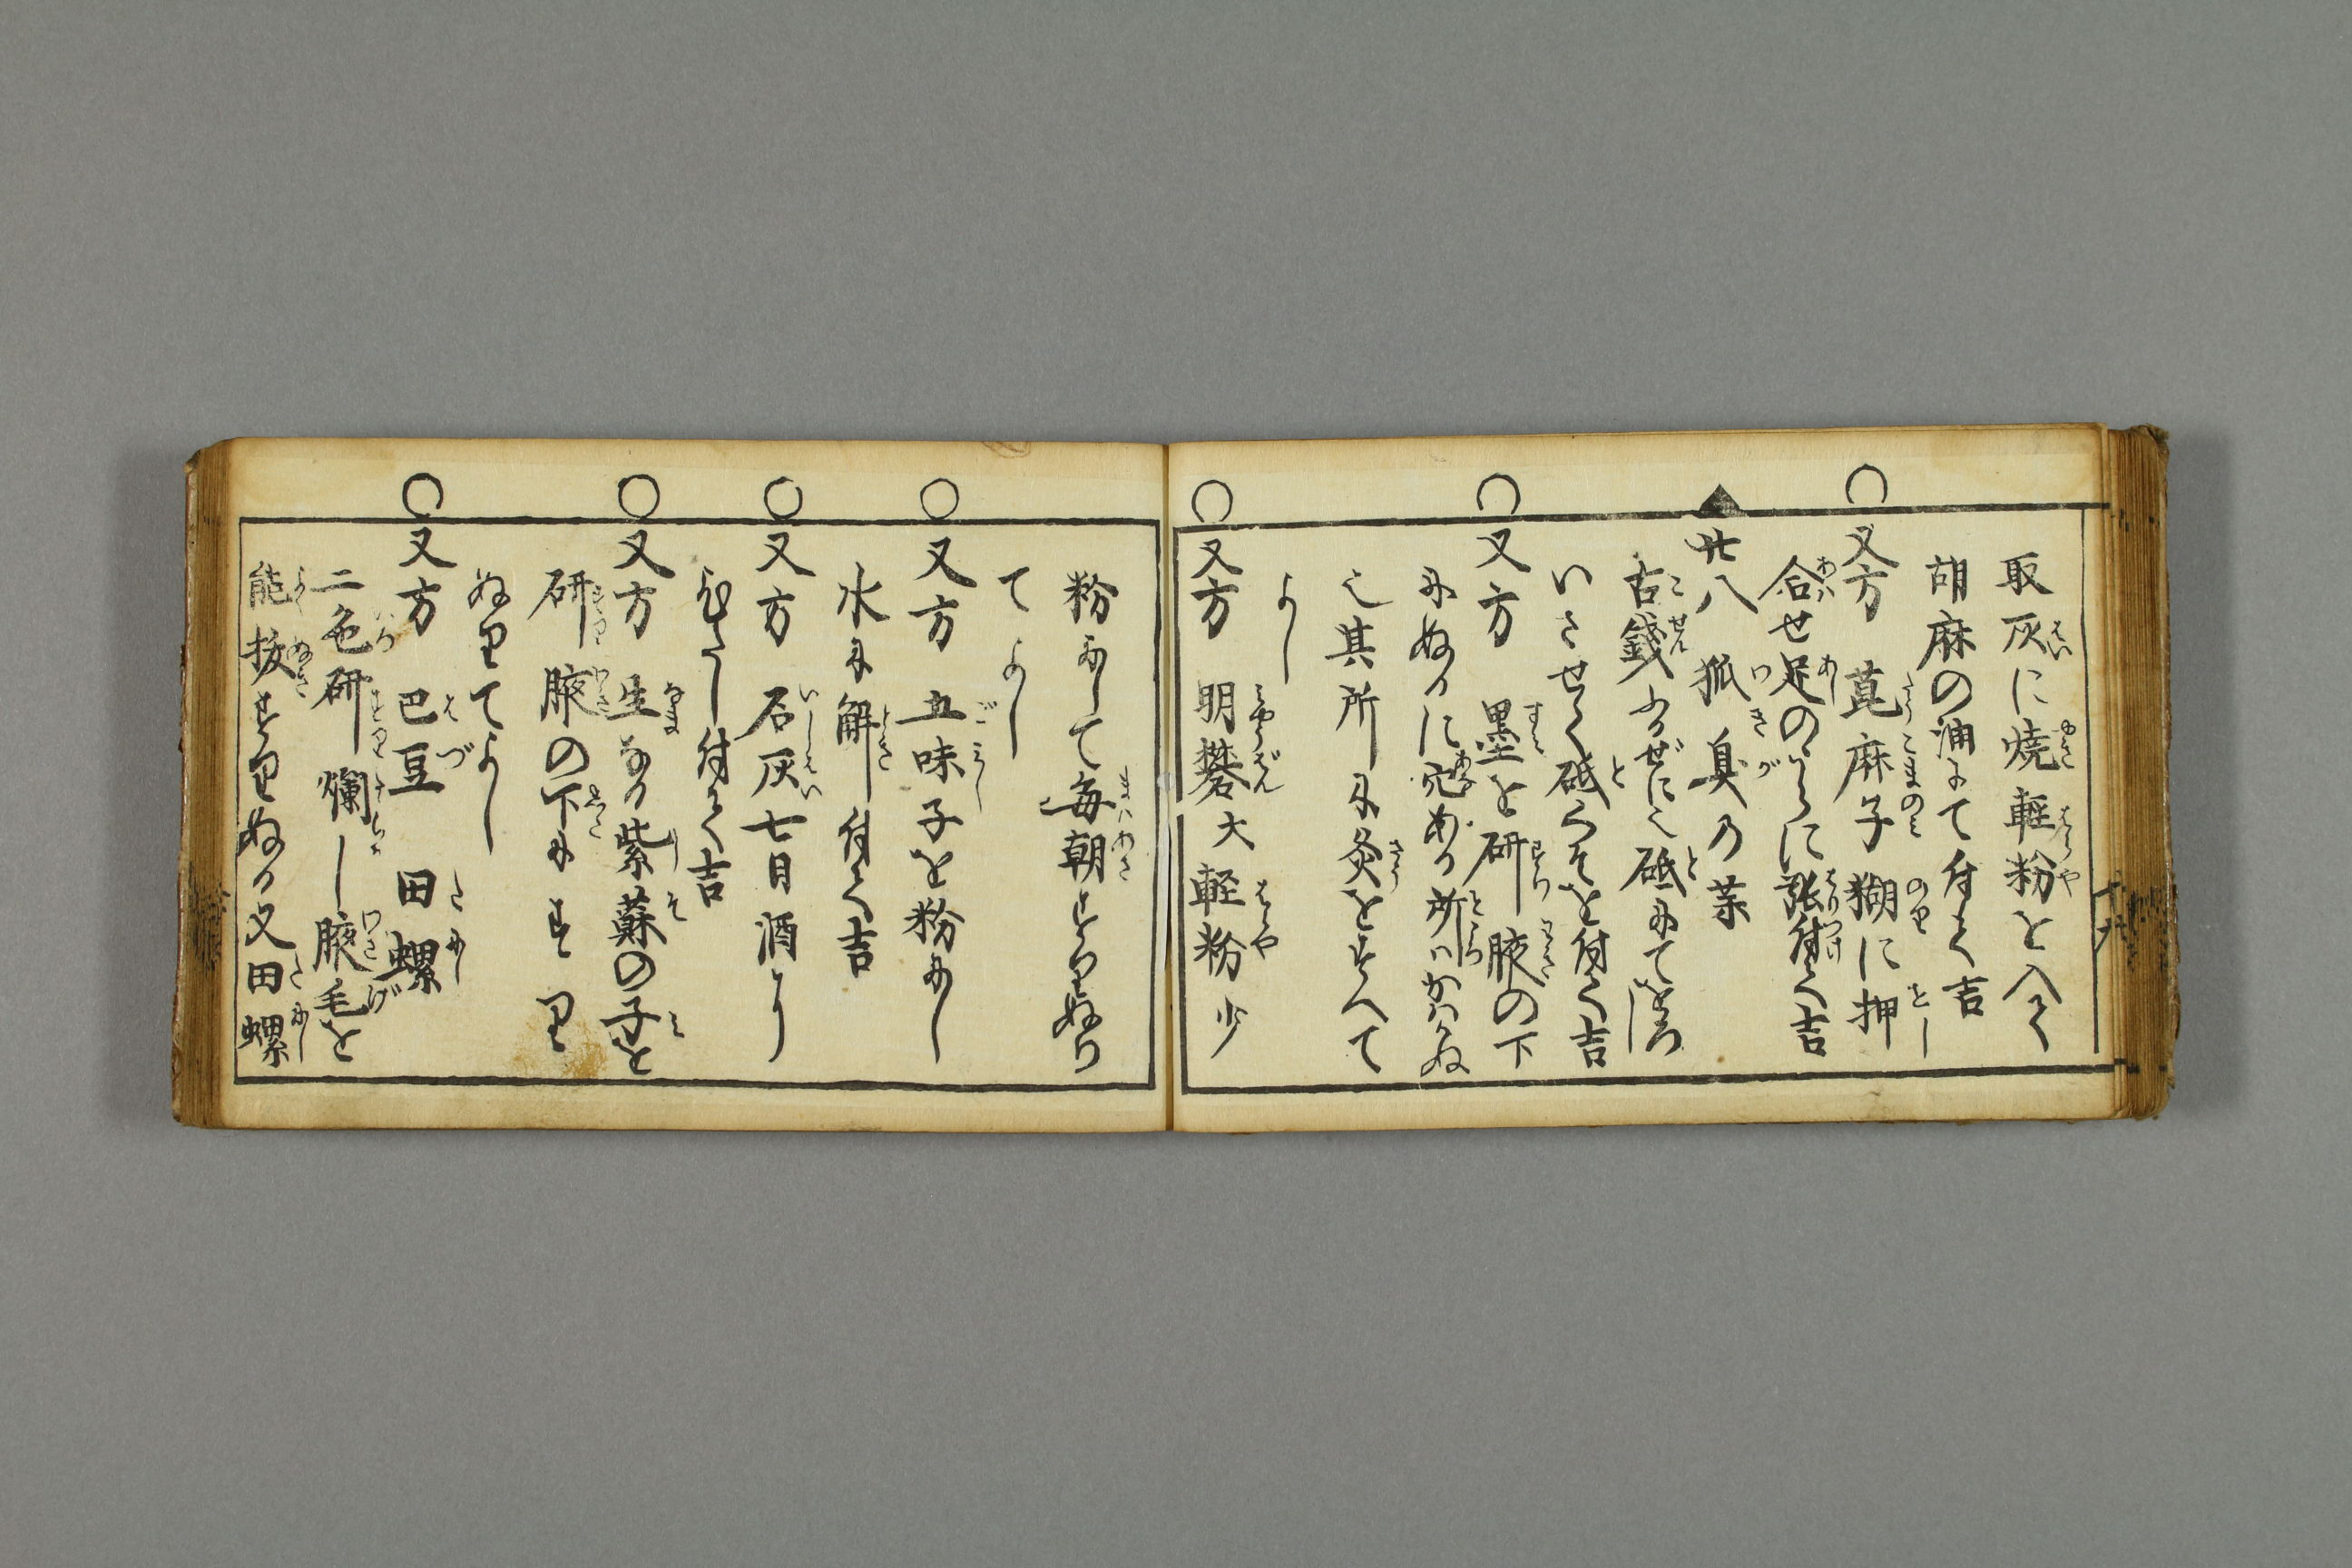 取灰に焼軽粉を入て
胡麻の油にて付て吉
○又方 萞麻子糊に押
合せ足のうらに張付て吉
▲廿八 狐臭の薬
古錢ふるぜに也砥にてをろ
いさせて砥くそを付て吉
○又方 墨を研腋の下
にぬるに穴ある所ハかハかぬ
也其所に灸をすへて
よし
○又方 明礬大軽粉少
粉にして毎朝すりぬり
てよし
○又方 五味子を粉にし
水に解付て吉
○又方 石灰七目酒に
ひたし付て吉
○又方 生なる紫蘇の子を
研腋の下にすり
ぬりてよし
○又方 巴豆 田螺
二色研爛し腋毛を
能抜すりぬる又田螺